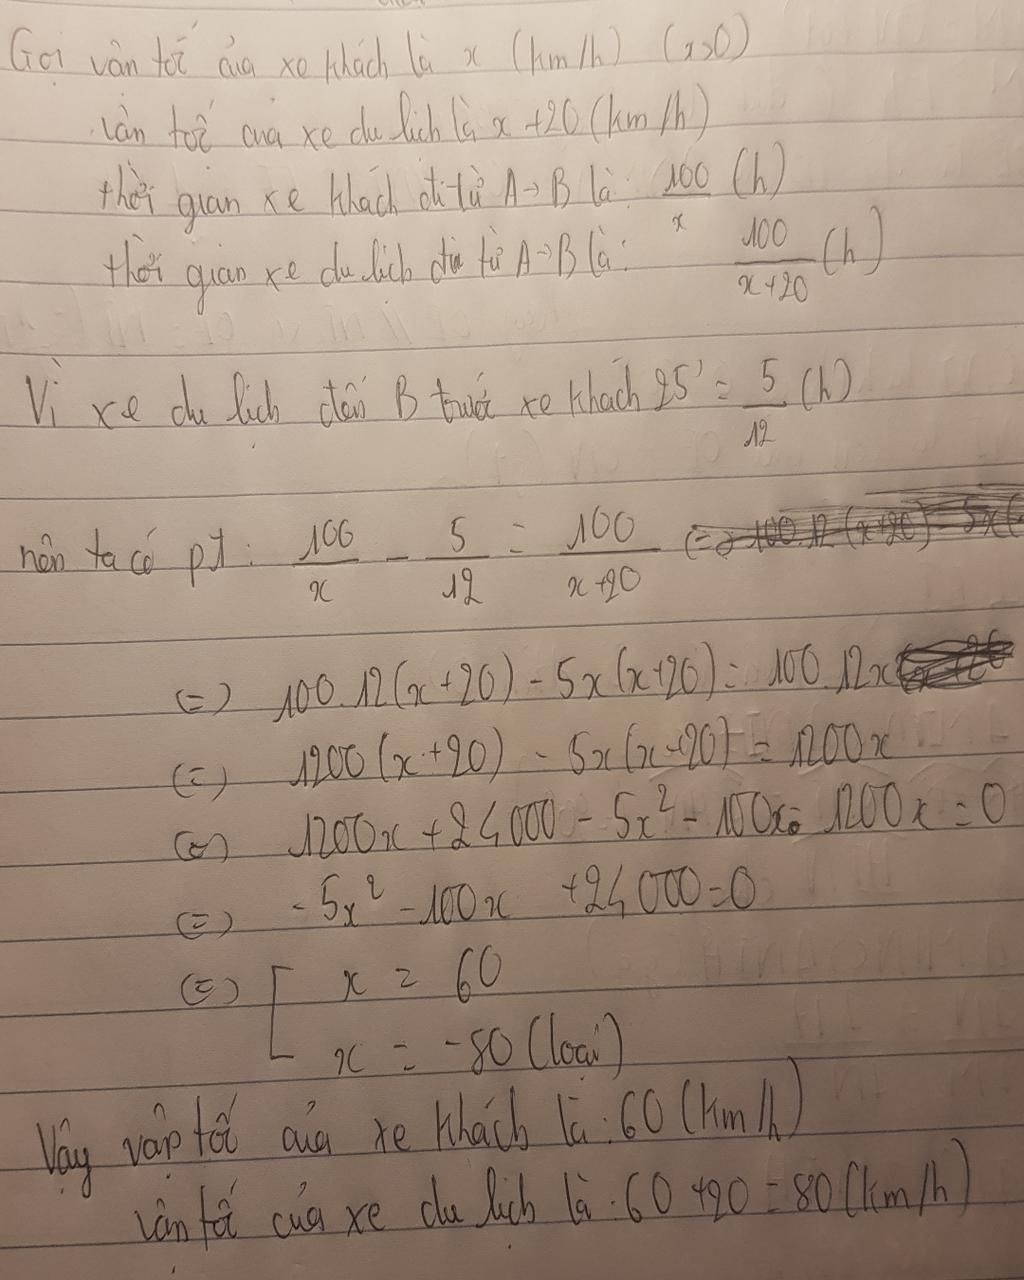 Gọi vận tốc của xe khách là x (km/h) (x>0)
vận tốc của xe du lịch là x +20 (km/h)
thời gian xe khách đi từ A→B là: 100/x (h)
thời gian xe du lịch đi từ A→B là: 100/(x+20) (h)
Vì xe du lịch đến B trước xe khách 25' = 5/12 (h)
nên ta có pt: 100/x - 5/12 = 100/(x+20)
(=) 100.12(x+20) - 5x(x+20) = 100.12x
(=) 1200(x+20) - 5x(x+20) = 1200x
(=) 1200x + 24000 - 5x² - 100x - 1200x = 0
(=) -5x² - 100x +24000=0
(=) [ x = 60
x = -80 (loại)
Vậy vận tốc của xe khách là: 60 (km/h)
vận tốc của xe du lịch là: 60 +20 = 80 (km/h)